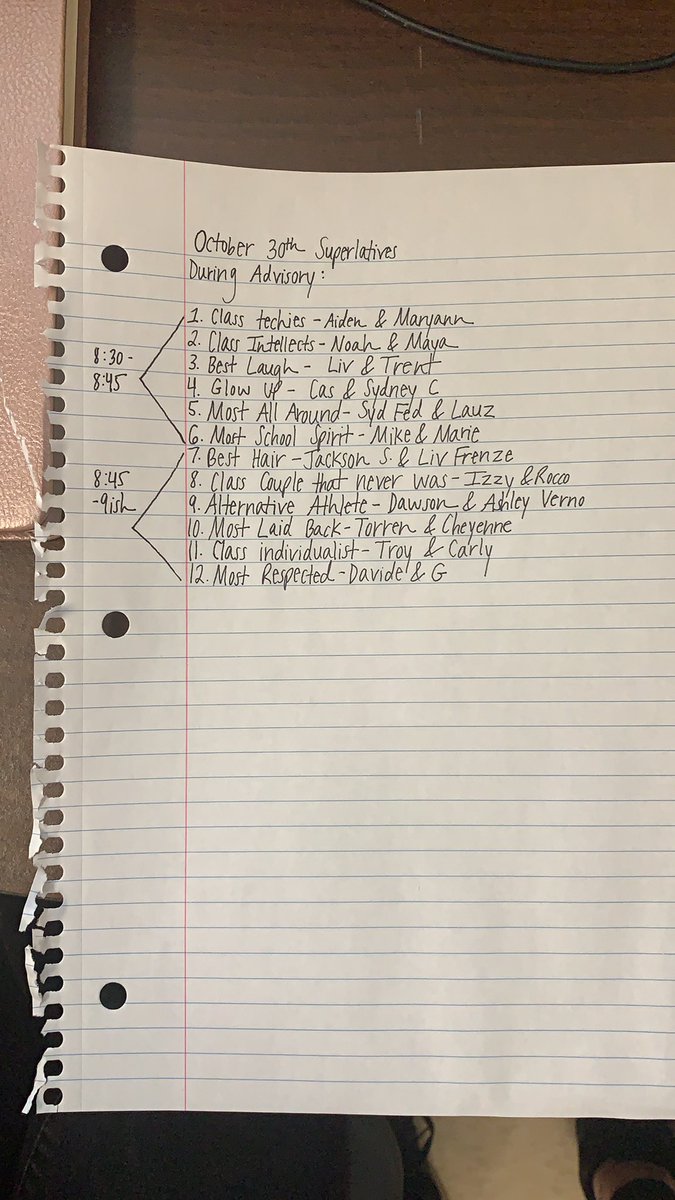 October 30th Superlatives
During Advisory:
1. Class techies - Aiden & Maryann
2. Class Intellects - Noah & Maya
8:30 -
8:45
3. Best Laugh - Liv & Trent
4. Glow Up - Cas & Sydney C
5. Most All Around - Syd Fed & Lauz
6. Most School Spirit - Mike & Marie
7. Best Hair - Jackson S. & Liv Frenze
8:45
-9ish
8. Class Couple that never was - Izzy & Rocco
9. Alternative Athlete - Dawson & Ashley Verno
10. Most Laid Back - Torren & Cheyenne
11. Class individualist - Troy & Carly
12. Most Respected - Davide & G